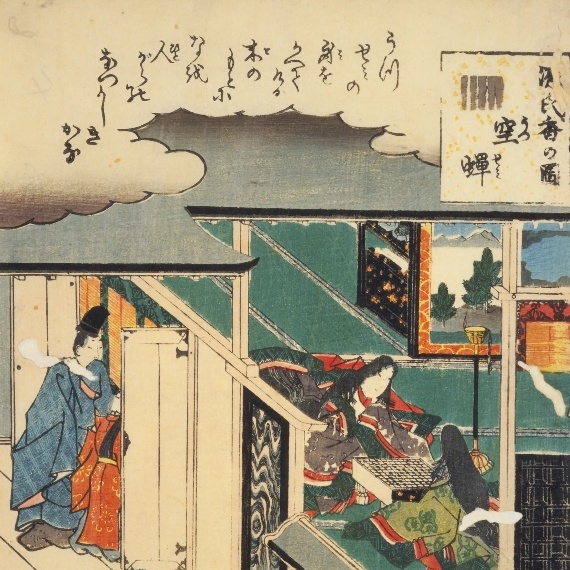 源氏香の圖
空蟬
うつ
せみの
身を
かへて
ける
木の
もとに
なを
人
がらの
なつかし
き
かな